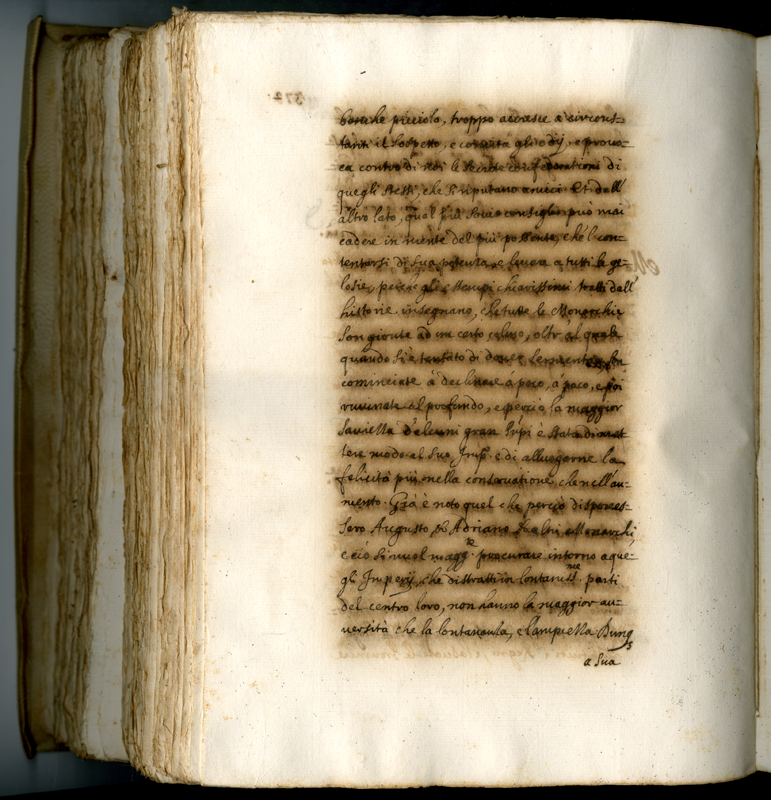 benche picciolo, troppo accresce a' circons=
tanti il sospetto, e concita gli odij, e provo=
ca contro di sè le secrete confederationi di
quegli stessi, che si riputano amici. Et dall'
altro lato, qual più savio consiglio può mai
cadere in mente del più possente, che 'l con=
tentarsi di sua potenza, e levar a tutti le ge=
losie, perche gli essempi chiarissimi tratti dall'
historie insegnano, che tutte le Monarchie
son gionte ad un certo, oltr' al quale
quando si è tentato di, son
cominciate à declinare à poco, à poco, e poi
ruvinate al profondo, e perciò la maggior
saviezza d'alcuni gran Prpi è stata di met
tere modo al suo Impº. e di alluogarne la
felicità più nella conservatione, che nell'au=
mento. Già è noto quel che perciò dispones=
sero Augusto, et Adriano, et altri Monarchi
e ciò si vuol maggte. procurare intorno a que=
gli Imperij, che distratti in lontanissme. parti
del centro loro, non hanno la maggior av=
versità che la lontananza, e l'ampiezza Dunqs
a sua